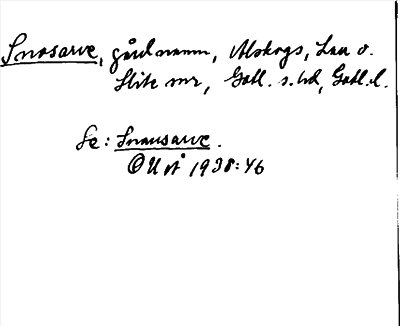 Snosarve, gårdnamn, Alskogs, Lau o.
Slite snr, Gotl. s. hd, Gotl. l.
Se: Snausarve.
OUÅ 1938:46